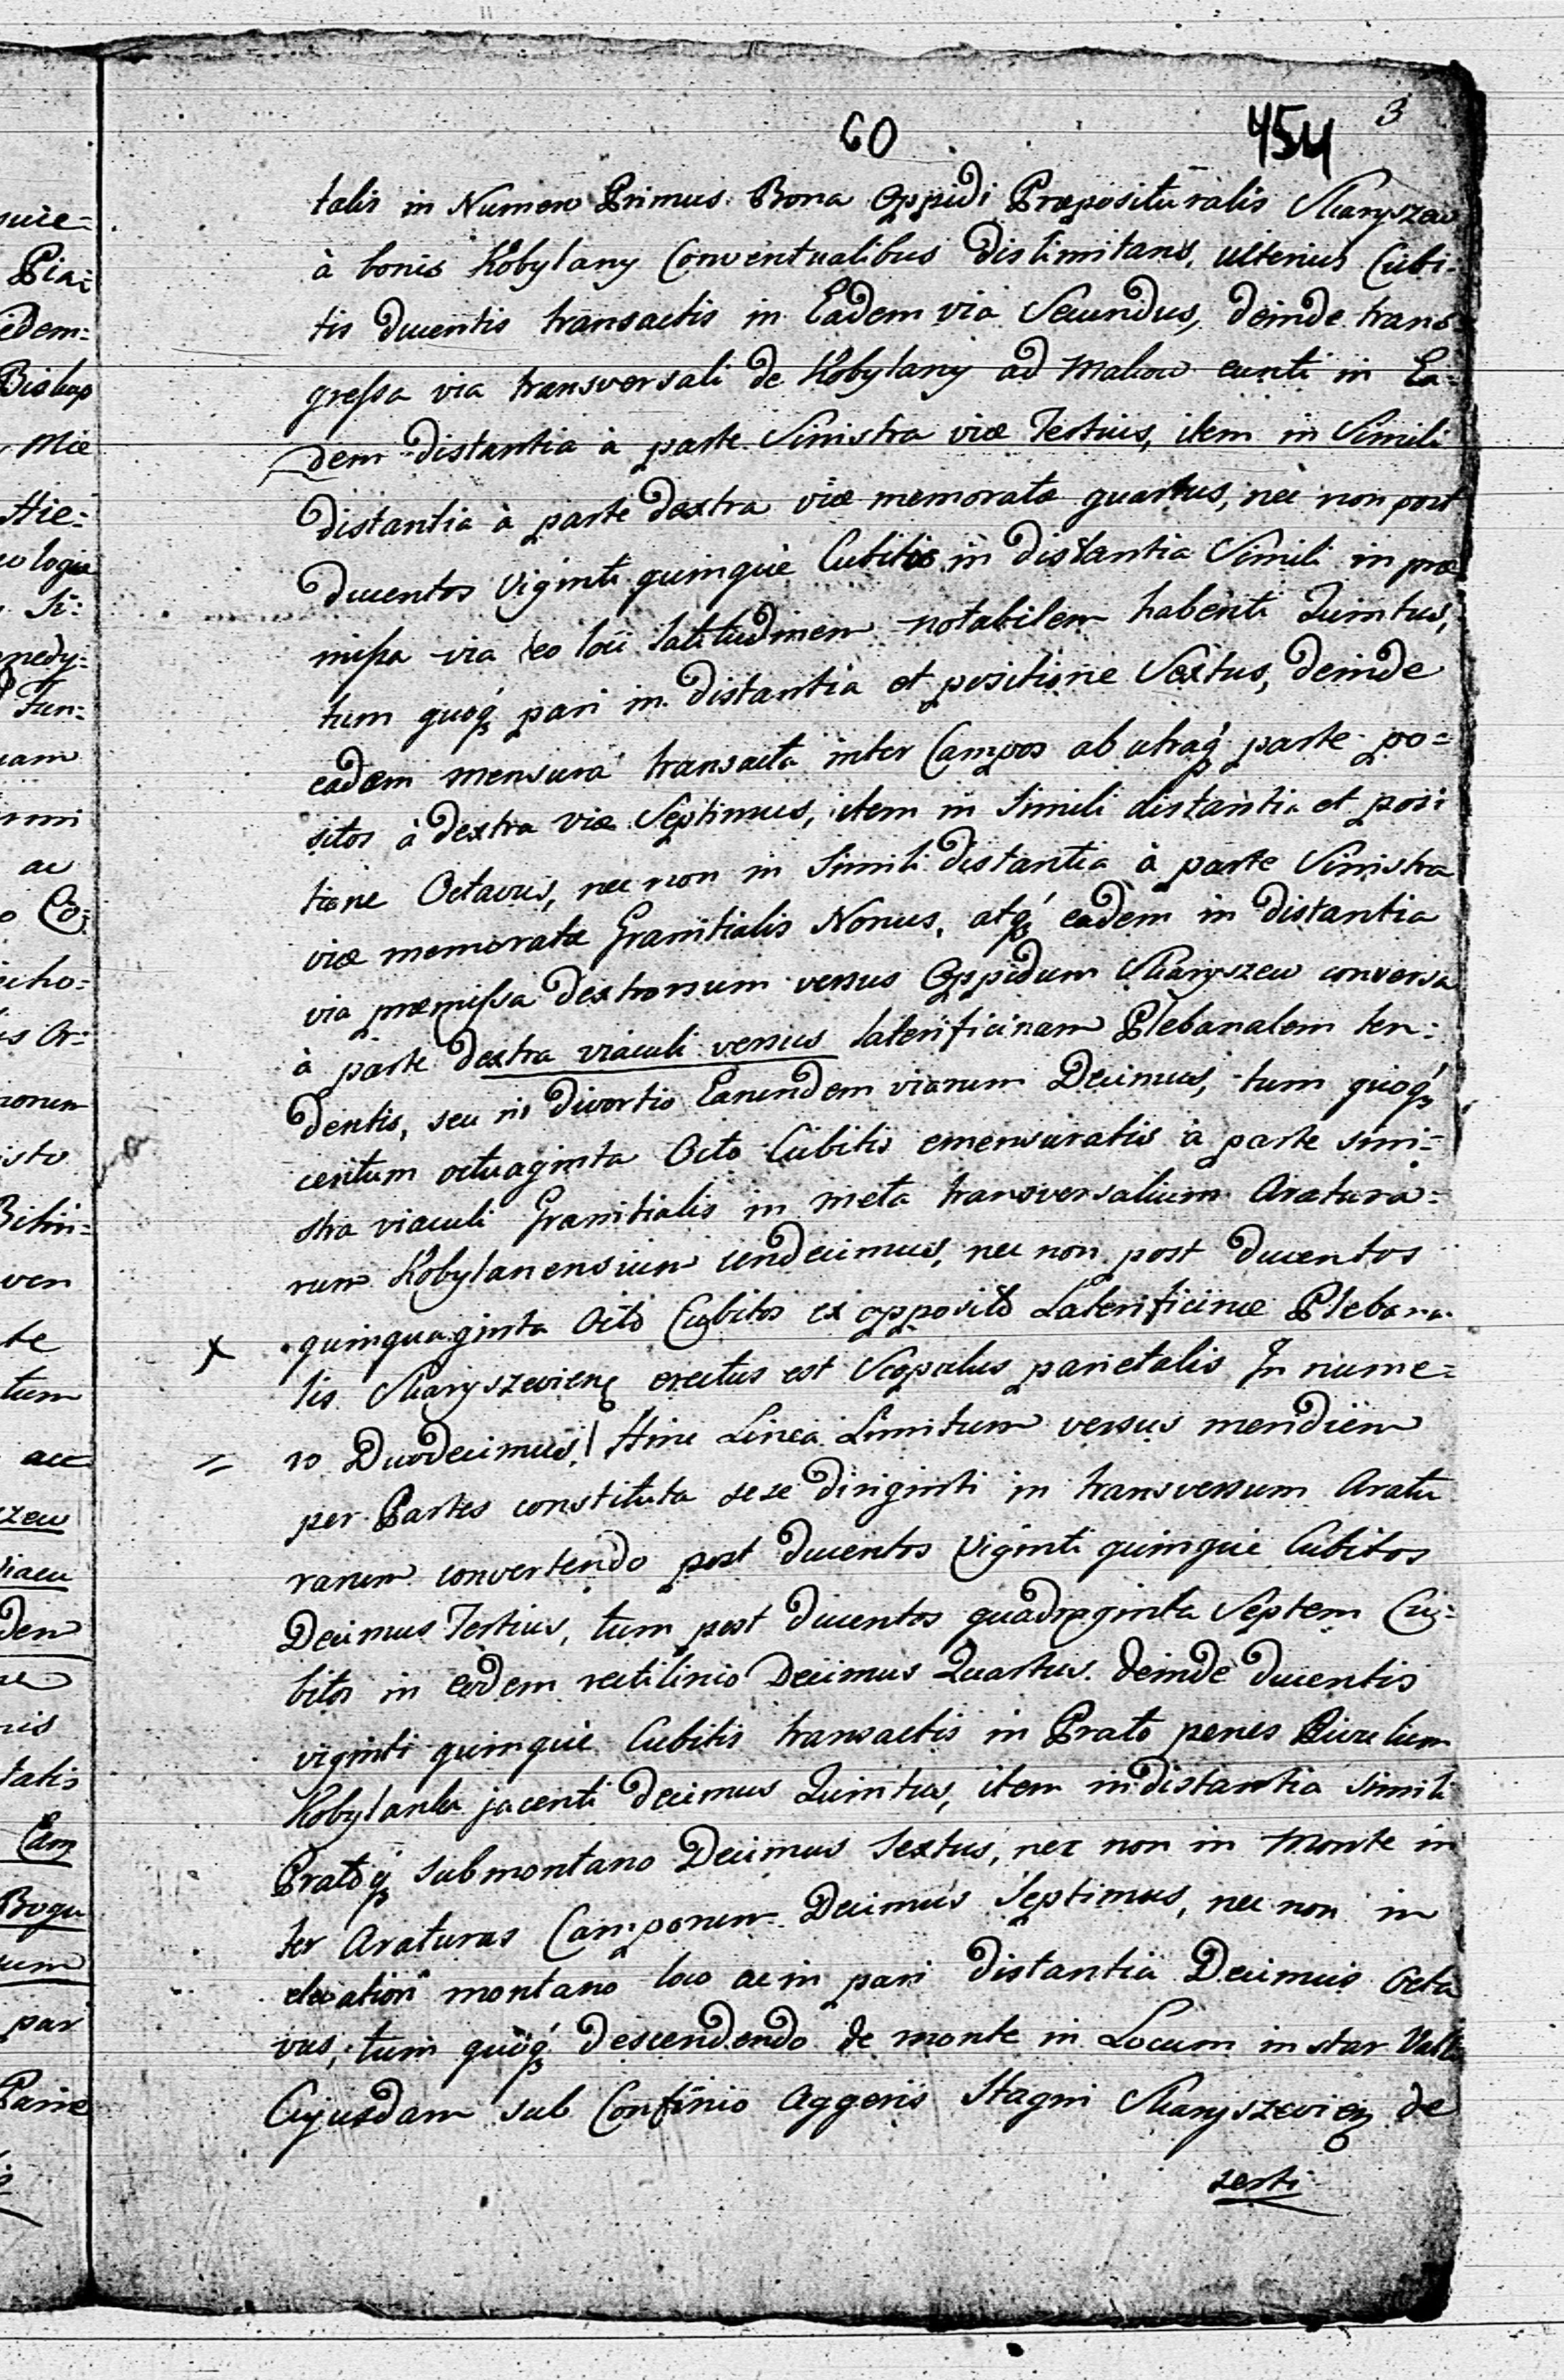 60 454 3
talis in Numero Primus Bona Oppidi Præpositúralis Skaryszew
à bonis Kobylany Conventualibus distimitans, ulterius Cubi-
tis ducentis transactis in Eadem via Secundus, deinde trans-
gressa via transversali de Kobylany ad Makow eunti in Ea-
dem distantia à parte Sinistra viæ Tertius, item in Simili
distantia à parte dextra viæ memoratæ quartus, nec non post
ducentos viginti quinque Cubitos in distantia Simili in præ
missa via eo loci latitudinem notabilem habenti Quintus,
tum quoq́ pari in distantia et positione Sextus, deinde
eadem mensura transacta inter Campos ab utraq́ parte po=
sitos à dextra viæ Septimus, item in Simili distantia et posi
tione Octavus, nec non in Simili distantia à parte Sinistra
viæ memoratæ Granitialis Nonus, atq́ eadem in distantia
via præmissa dextrorsum versus Oppidum Skaryszew conversa
à parte dextra viaculi versus Laterificinam Plebanalem ten=
dentis, seu in divortio Earundem viarum Decimus, tum quoq́
centum octuaginta Octo Cubitis emensuratis à parte sini=
stra viaculi Granitialis in meta transversalium Aratura=
rum Kobylanensium undecimus, nec non post ducentos
x quinquaginta Octo Cubitos ex opposito Laterificinæ Plebana
lis Skaryszevien erectus est Scopulus parietalis In nume=
= ro Duodecimus! Hinc Linea Limitum versus meridiem
per Partes constituta sese diriginti in transversum Aratu
rarum convertendo post ducentos viginti quinque Cubitos
Decimus Tertius, tum post ducentos quadraginta Septem Cu=
bitos in eodem rectilinio Decimus Quartus. deinde ducentis
viginti quinque Cubitis transactis in Prato penes Rivulum
Kobylanka jacenti decimus Quintus, item in distantia simili
Pratoq́ submontano Decimus Sextus, nec non in Monte in
ter Araturas Camporum Decimus Septimus, nec non in
elevation montano loco ac in pari distantia Decimus Octa
vus, tum quoq́ descendendo de monte in Locum instar Vallis
Cujusdam sub Confinio Aggeris Stagni Skaryszevien de
serti